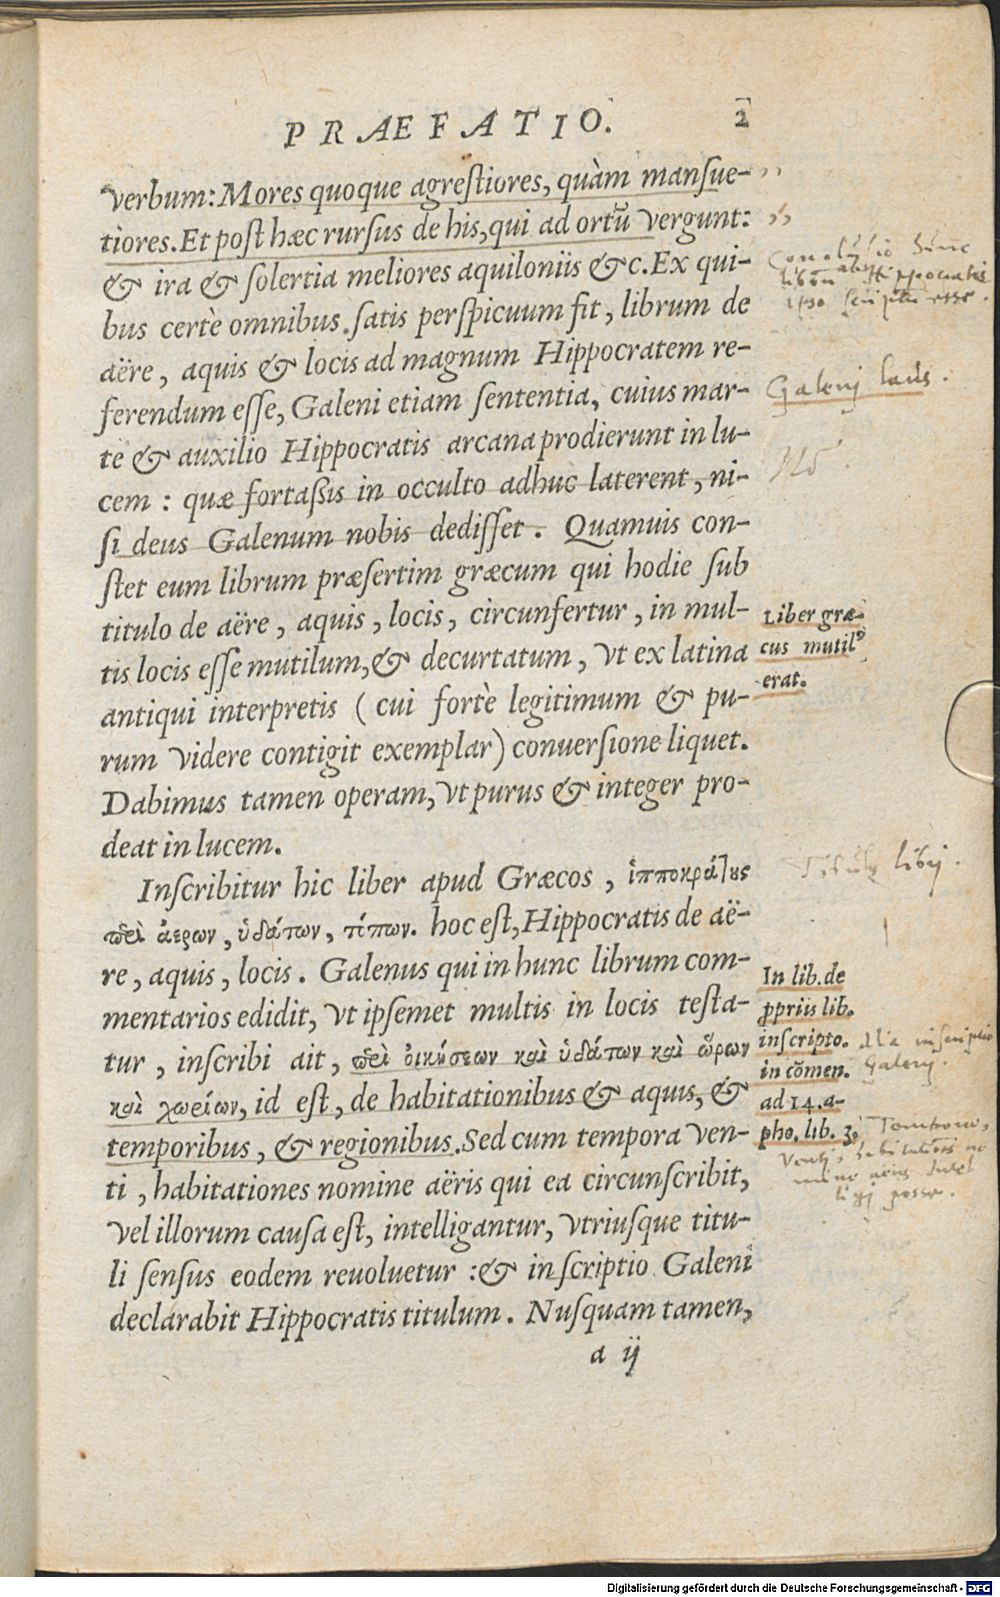 PRAEFATIO. 2
verbum: Mores quoque agrestiores, quàm mansue-
tiores. Et post hæc rursus de his, qui ad ortū vergunt:
& ira & solertia meliores aquiloniis &c. Ex qui-
bus certè omnibus satis perspicuum fit, librum de
aëre, aquis & locis ad magnum Hippocratem re-
ferendum esse, Galeni etiam sententia, cuius mar-
te & auxilio Hippocratis arcana prodierunt in lu-
cem : quæ fortaßis in occulto adhuc laterent, ni-
si deus Galenum nobis dedisset. Quamuis con-
stet eum librum præsertim græcum qui hodie sub
titulo de aëre, aquis, locis, circunfertur, in mul-
tis locis esse mutilum, & decurtatum, vt ex latina
antiqui interpretis ( cui fortè legitimum & pu-
rum videre contigit exemplar) conuersione liquet.
Dabimus tamen operam, vt purus & integer pro-
deat in lucem.
Inscribitur hic liber apud Græcos, ἱπποκράτους
περὶ ἀερων, ὑδάτων, τόπων. hoc est, Hippocratis de aë-
re, aquis, locis. Galenus qui in hunc librum com-
mentarios edidit, vt ipsemet multis in locis testa-
tur, inscribi ait, περὶ οἰκήσεων καὶ ὑδάτων καὶ ὡρων
καὶ χωρίων, id est, de habitationibus & aquis, &
temporibus, & regionibus. Sed cum tempora ven-
ti, habitationes nomine aëris qui ea circunscribit,
vel illorum causa est, intelligantur, vtriusque titu-
li sensus eodem reuoluetur : & inscriptio Galeni
declarabit Hippocratis titulum. Nusquam tamen,
a ij
hunc
librū Hippocratis
scriptū esse.
Galenj laus.
Liber græ-
cus mutilꝰ
erat.
Titulꝰ librj.
In lib. de
ꝓpriis lib.
inscripto.
in cōmen.
ad 14. a-
pho. lib. 3.
Galenj.
posse.
Digitalisierung gefördert durch die Deutsche Forschungsgemeinschaft - DFG